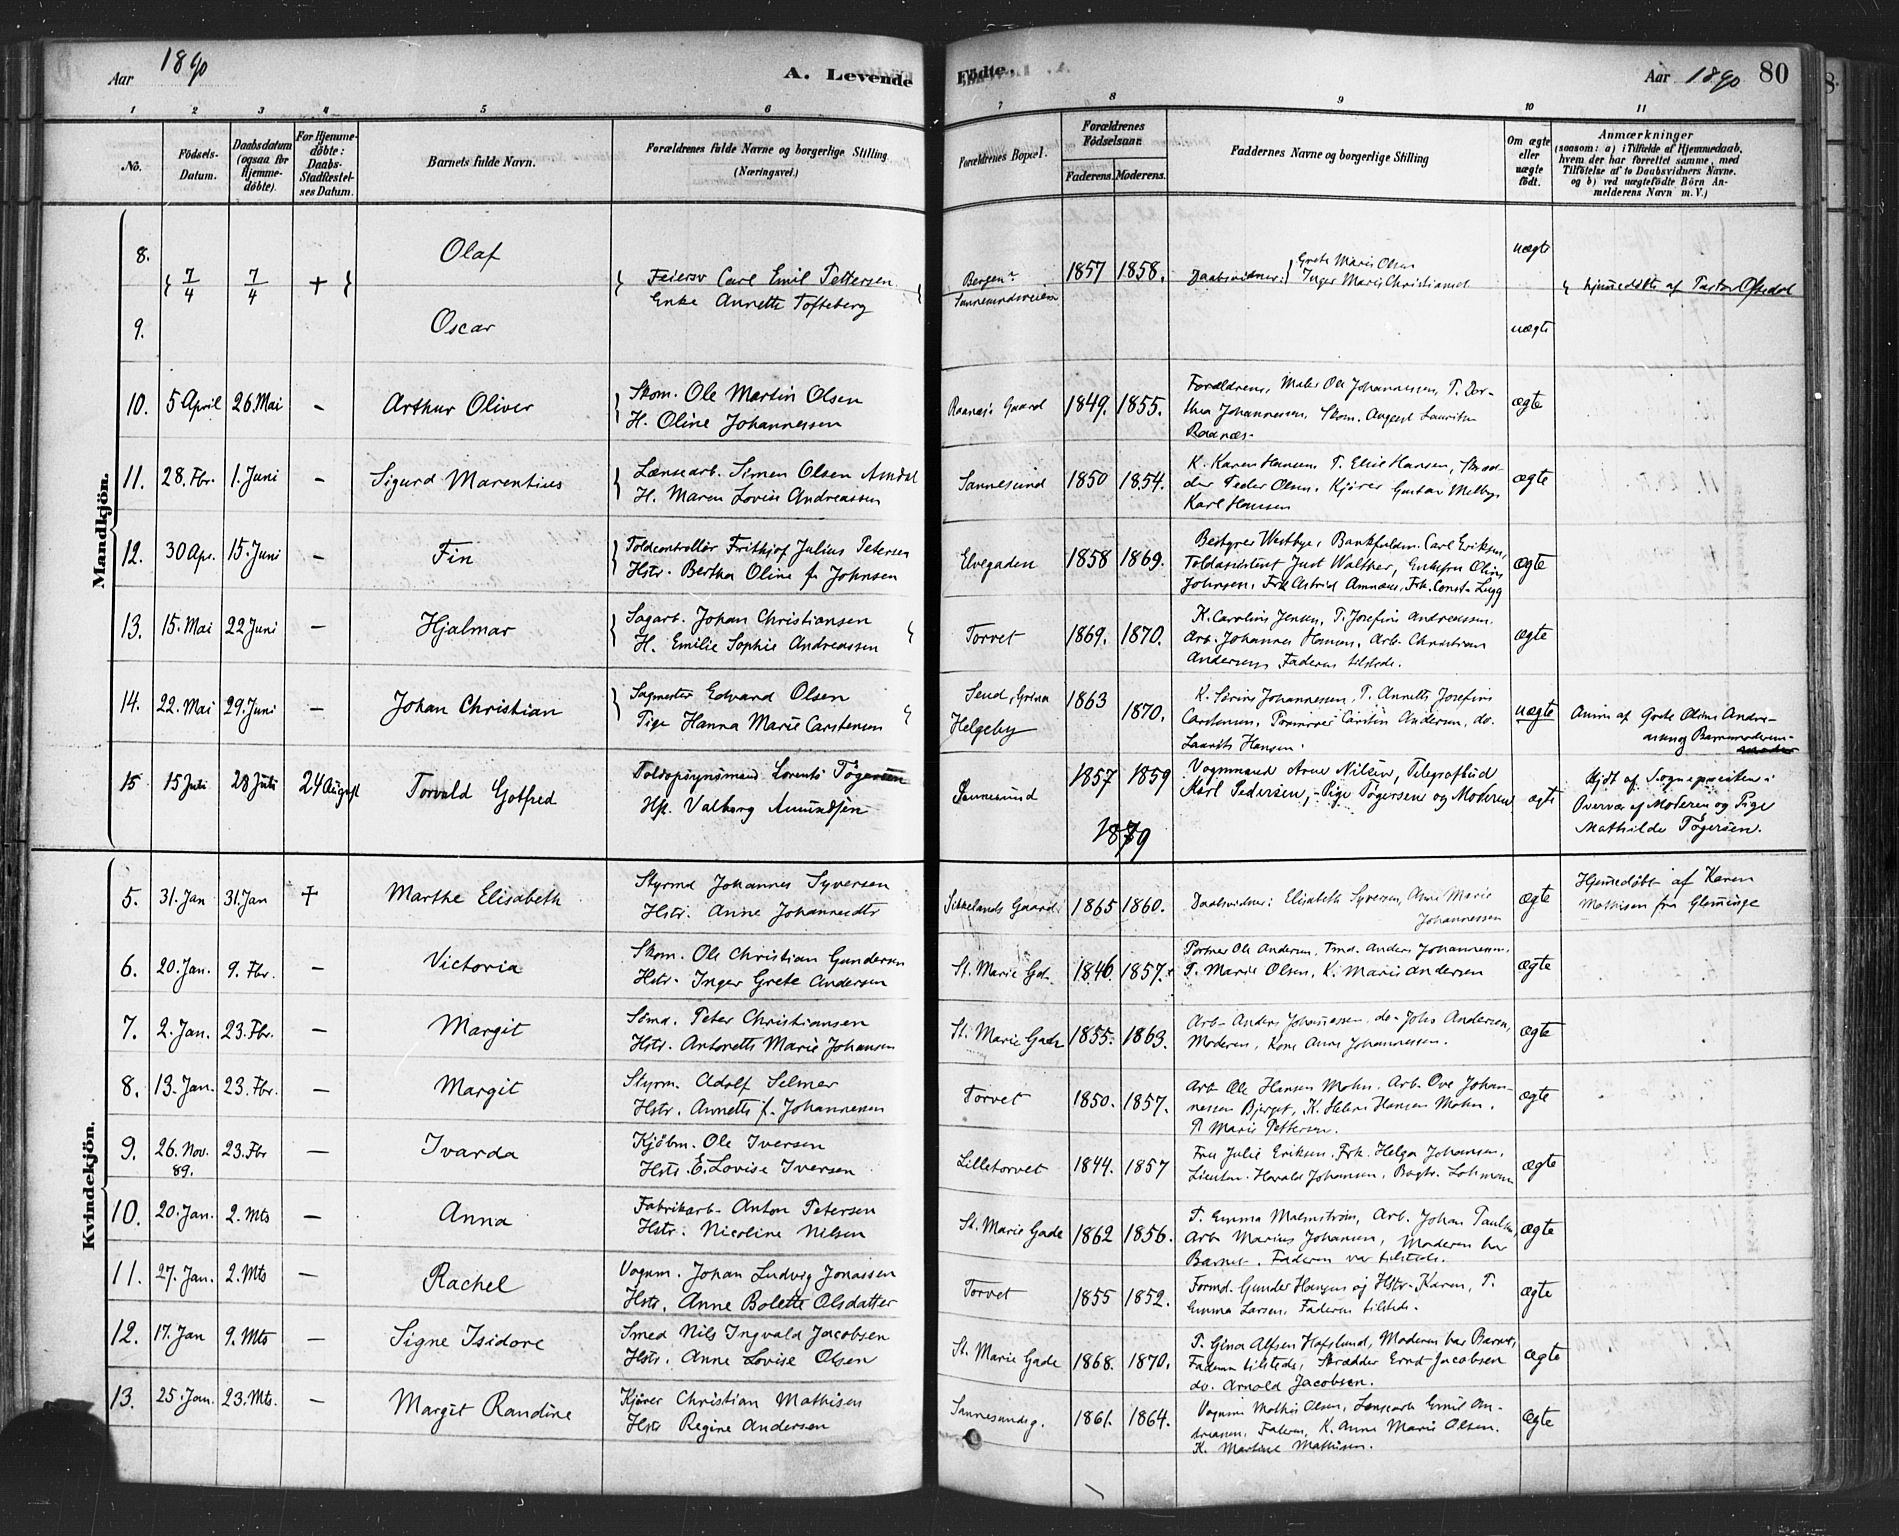 Aar 1890
A. Levende
Födte.
Aar 1890 80
1 2 3 4 5 6 7 8 9 10 11
No.
Födsels-Datum.
Daabsdatum (ogsaa for Hjemme-döbte).
For Hjemme-döbte: Daabs-Stadfestel-ses Datum.
Barnets fulde Navn.
Forældrenes fulde Navne og borgerlige Stilling (Næringsvei.)
Forældrenes Bopæl.
Forældrenes Födselsaar.
Faderens. Moderens.
Faddernes Navne og borgerlig Stilling
Om ægte eller uægte födt.
Anmærkninger
(saasom: a) i Tilfælde af Hjemmedaab,
hvem der har forrettet samme, med
Tilföielse af to Daabsvidners Navne.
og b) ved uægtefödte Börn An-
melderens Navn m. V.)
Mandkjön.
8. Olaf uægte
7/4 7/4 + Feiersv Carl Emil Pettersen
Enke Annette Tofteberg
Bergen
Sannesundsveien
1857 1858.
Daabsvidner: Grete Marie Olsen
Inger Marie Christiansd
hjemmedöbte af Pastor
9. Oscar uægte
10. 5 April 26. Mai – Arthur Oliver
Skom. Ole Martin Olsen
H. Oline Johannessen
Raanæs Gaard 1849. 1855.
Forældrene, Maler Ole Johannessen, P. Dor-
thea Johannessen, Skom. August Lauritsen
Raanæs.
ægte
11. 28. Fbr. 1. Juni – Sigurd Marentius
Lænsearb. Simen Olsen Amdal
H. Maren Lovise Andreassen
Sannesund 1850 1854.
K. Karen Hansen P. Elise Hansen, Skræd-
der Peder Olsen, Kjörer Gustav Melby,
Karl Hansen
ægte
12. 30 Apr. 15. Juni – Fin
Toldcontrollör Frithjof Julius Petersen
Hstr. Bertha Oline f. Johnsen
Elvegaden 1858 1869.
Bestyrer Westbye, Bankfuldm. Carl Eriksen,
Toldassistent Just Walther, Enkefru Oline
Johnsen, Frk Astrid
ægte
13. 15. Mai 22 Juni – Hjalmar
Sagarb. Johan Christiansen
H. Emilie Sophie Andreassen
Torvet 1869. 1870.
K. Caroline Jensen, P. Josefine Andreassen.
Arb. Johannes Hansen, Arb. Christian
Andersen, Faderen tilstede.
ægte
14. 22. Mai 29. Juni – Johan Christian
Sagmester Edvard Olsen
Pige Hanna Marie Carstensen
Helgeby
1863 1870.
K. Sirine Johannessen, P. Annette Josefine
Carstensen, Carstin Andersen, do.
Laurits Hansen.
uægte
Anm. af Grete Oline Andre-
15 15 Juli 28 Juli 24 August Torvald Gotfred
Toldopsynsmand Lorents Tögersen
H. Valborg Amundsen
Sannesund 1857 1859
Vognmand Arne Nilsen, Telegrafbud
Karl Pedersen, Pige Tögersen og Moderen
ægte
Hjdt af Sognepresten i
Overvær af Moderen og Pige
Mathilde Tögersen.
1879
Kvindekjön.
5. 31. Jan 31. Jan + Marthe Elisabeth
Styrmd Johannes Syversen
Hstr. Anne Johannesdtr
Sikkelands Gaard 1865 1860.
Daabsvidner: Elisabeth Syversen, Anne Marie
Johannessen
ægte
Hjemmedöbt af Karen
Mathisen fra Glemminge
6. 20. Jan. 9. Fbr. – Victoria
Skom. Ole Christian Gundersen
Hstr. Inger Grete Andersen
St. Marie Gd. 1846 1857.
Portner Ole Andersen, Tmd. Anders Johannessen,
P. Marie Olsen, K. Marie Andersen
ægte
7. 2. Jan. 23. Fbr. – Margit
Sömd. Peter Christiansen
Hstr. Antonette Marie Johansen
St. Marie Gade 1855. 1863.
Arb. Anders Johannessen, do. Johs Andersen,
Moderen, Kone Anne Johannessen.
ægte
8. 13. Jan. 23. Fbr. – Margit
Styrm. Adolf Selmer
Hstr. Annette f. Johannessen
Torvet 1850. 1857.
Arb. Ole Hansen Mohn. Arb. Ove Johan-
nessen Bjerget, K. Helene Hansen Mohn.
P. Marie Pettersen.
ægte
9. 26. Nov. 89. 23. Fbr – Ivarda
Kjöbm. Ole Iversen
Hstr. E. Lovise Iversen
Lilletorvet 1844. 1857
Fru Julie Eriksen, Frk. Helga Johansen,
Lieutn. Harald Johansen, Bogtr. Lohmann
ægte
10. 20. Jan. 2. Mts – Anna
Fabrikarb. Anton Petersen
Hstr. Nicoline Nilsen
St. Marie Gade 1862 1856.
P. Emma Malmström, Arb. Johan Paulsen,
Arb Marius Johansen, Moderen bar
Barnet. Faderen var tilstede.
ægte
11. 27. Jan. 2. Mts – Rachel
Vognm. Johan Ludvig Jonassen
Hstr. Anne Bolette Olsdatter
Torvet 1855 1852.
Formd. Gunder Hansen og Hstr. Karen, P.
Emma Larsen, Faderen tilstede.
ægte
12. 17. Jan 9. Mts – Signe Isidore
Smed Nils Ingvald Jacobsen
Hstr. Anne Lovise Olsen
St. Marie Gade 1868. 1870.
P. Gina Alfsen Hafslund, Moderen bar Barnet,
Faderen tilstede, Skrædder Ernst Jacobsen
do. Arnold Jacobsen.
ægte
13. 25. Jan. 23. Mts. – Margit Randine
Kjörer Christian Mathisen
Hstr Regine Andersen
Sannesundsg. 1861. 1864.
Vognm Mathis Olsen, Lænsearb Emil An-
dreasen, Faderen, K. Anne Marie Olsen.
K. Martine Mathisen.
ægte